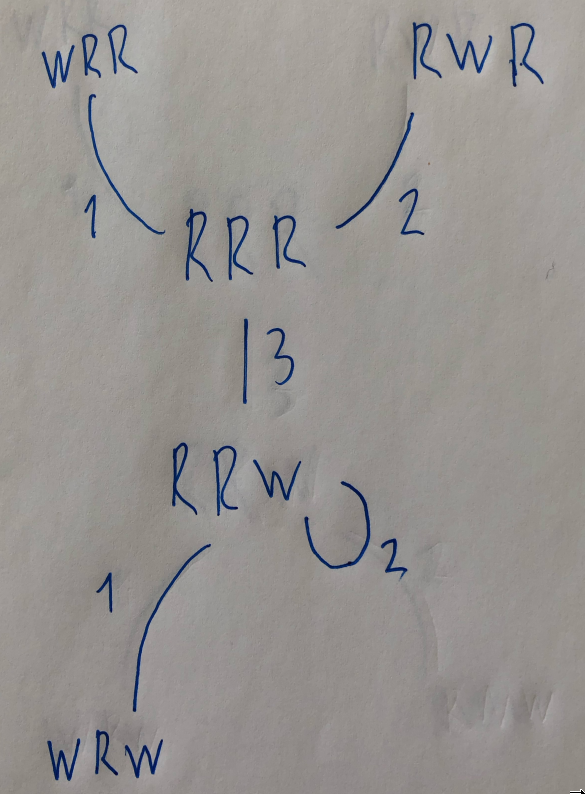 WRR RWR
1 2
RRR
3
RRW
2
1
WRW